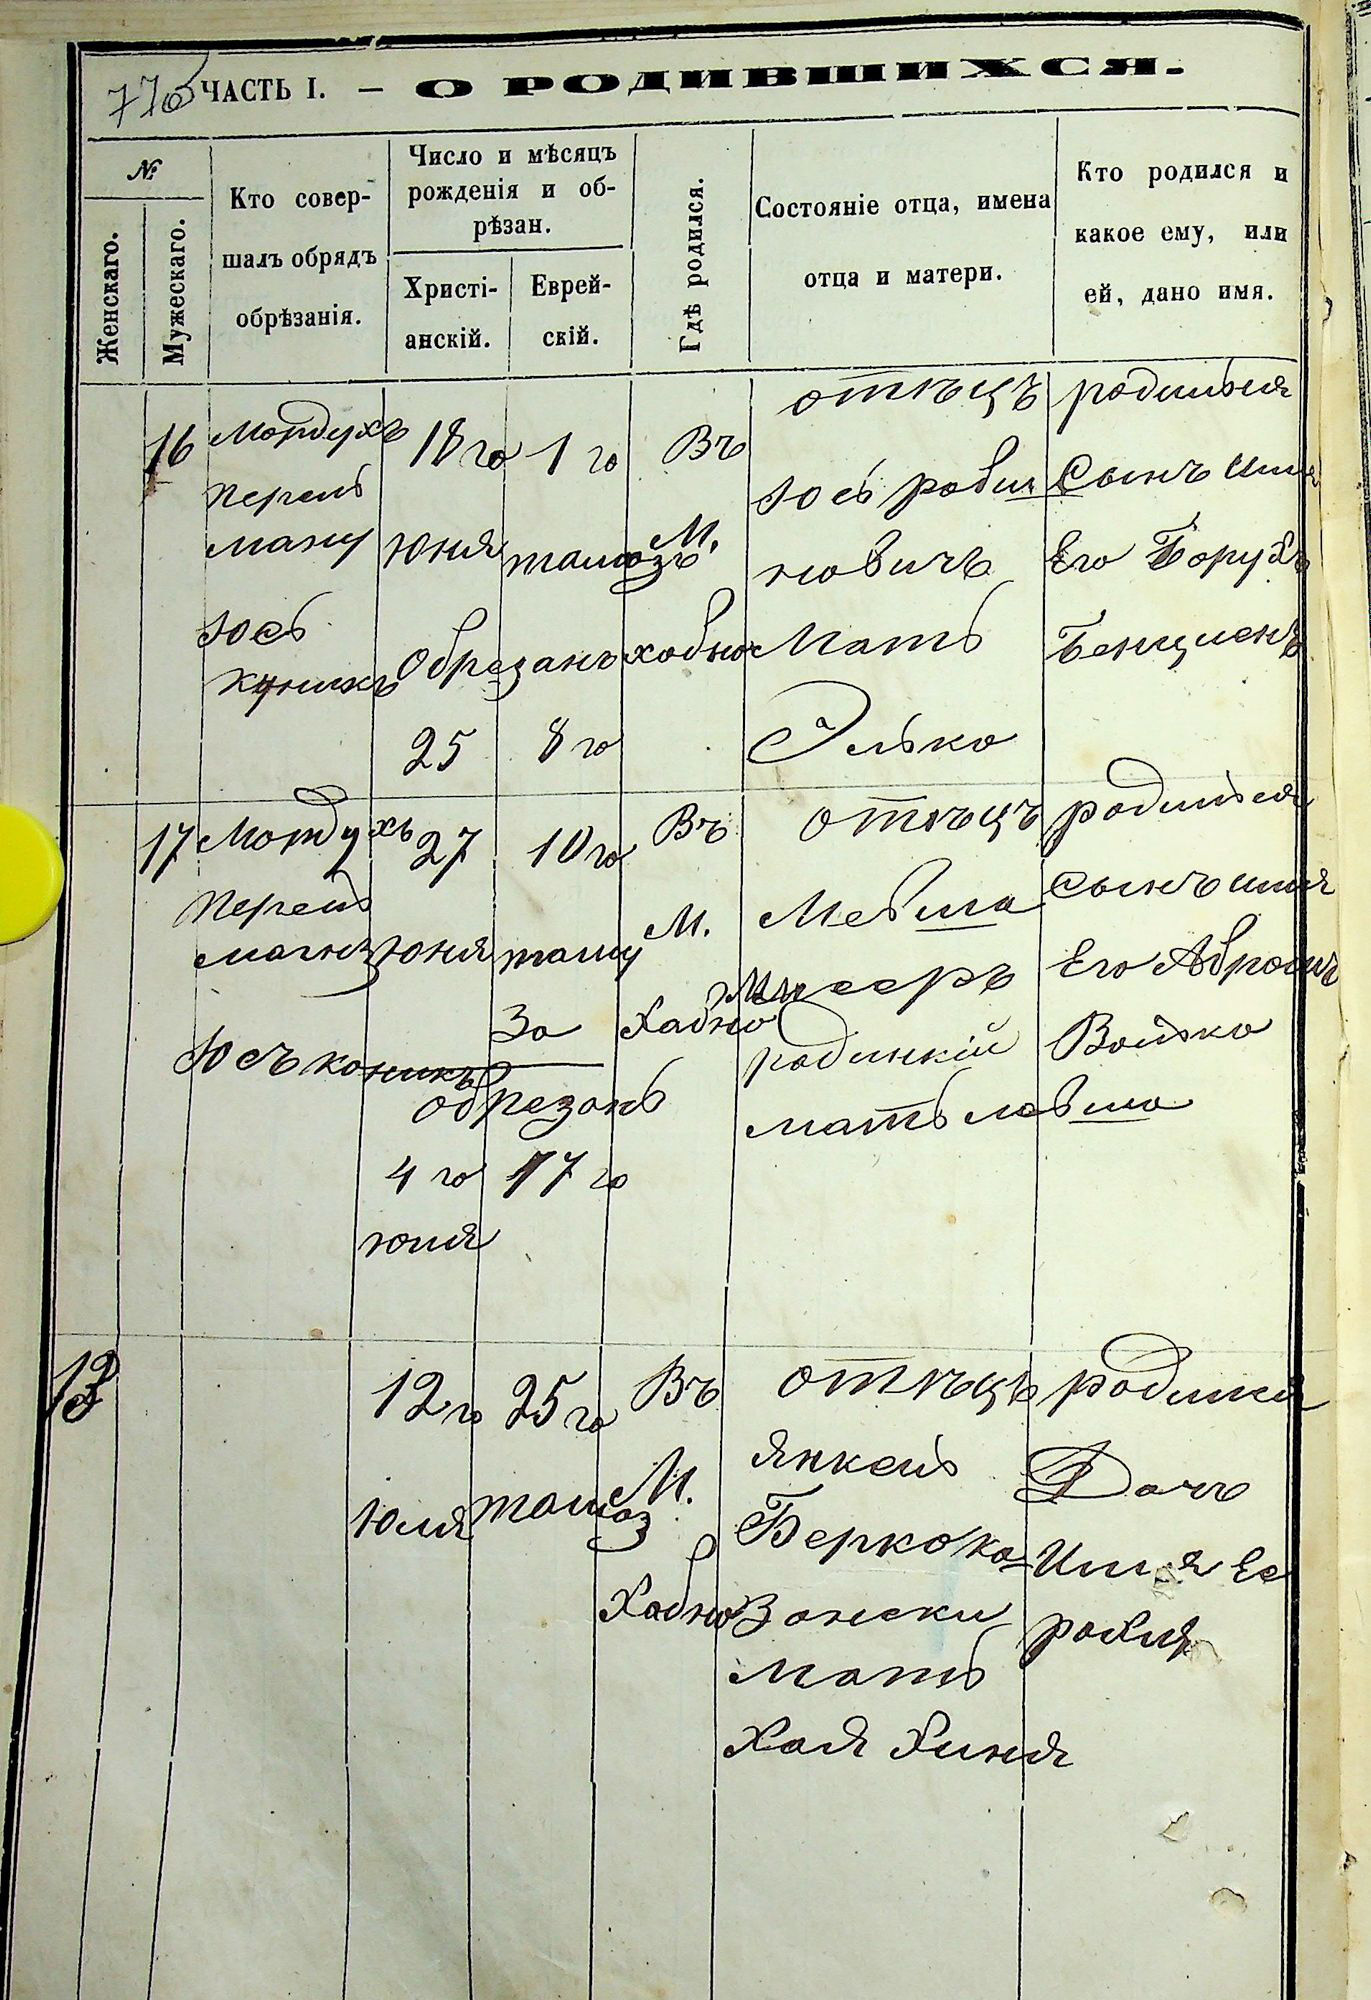 776 ЧАСТЬ I. — О РОДИВШИХСЯ.
№
Женскаго.
Мужескаго.
Кто совер-
шалъ обрядъ
обрѣзанія.
Число и мѣсяцъ
рожденія и об-
рѣзан.
Христі-
анскій.
Еврей-
скій.
Гдѣ родился.
Состояніе отца, имена
отца и матери.
Кто родился и
какое ему, или
ей, дано имя.
16
Мордухъ
Перель
ману
Юсь
куникъ
18го
Юня
Обрезанъ
25
1го
тамозъ
8го
Въ
М.
хабно
отѣцъ
Юсь раби
новичъ
Мать
Элька
родился
Сынъ имя
Его Борухъ
Бенционъ
17
Мордухъ
Перель
Юсъ коникъ
27
Юня
обрезанъ
4го
юля
10го
таму
за
17го
Въ
М.
Хабно
отѣцъ
родинкій
мать
родился
Сынъ имя
Его Авромъ
Волько
13
12го
Юля
25го
тамоз
Въ
М.
Хабно
отѣцъ
Янкель
Берко ка=
Зански
Мать
Хая Хиня
родился
Дочъ
Имя Ее
рохля